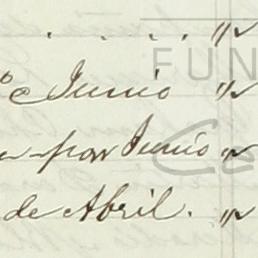 . . . . "
o e Junio "
por Junio "
de Abril. "
FUN
Ce